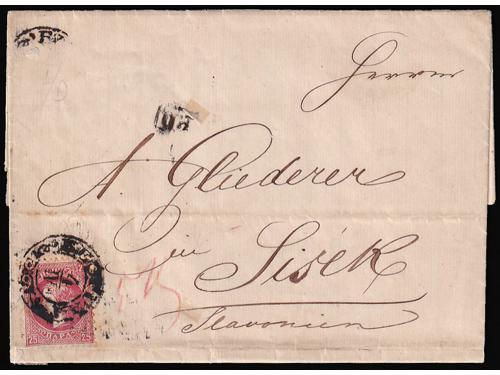 Herrn
A. Gliederer
in
Sisek
Slavonien
25 ПАРА 25